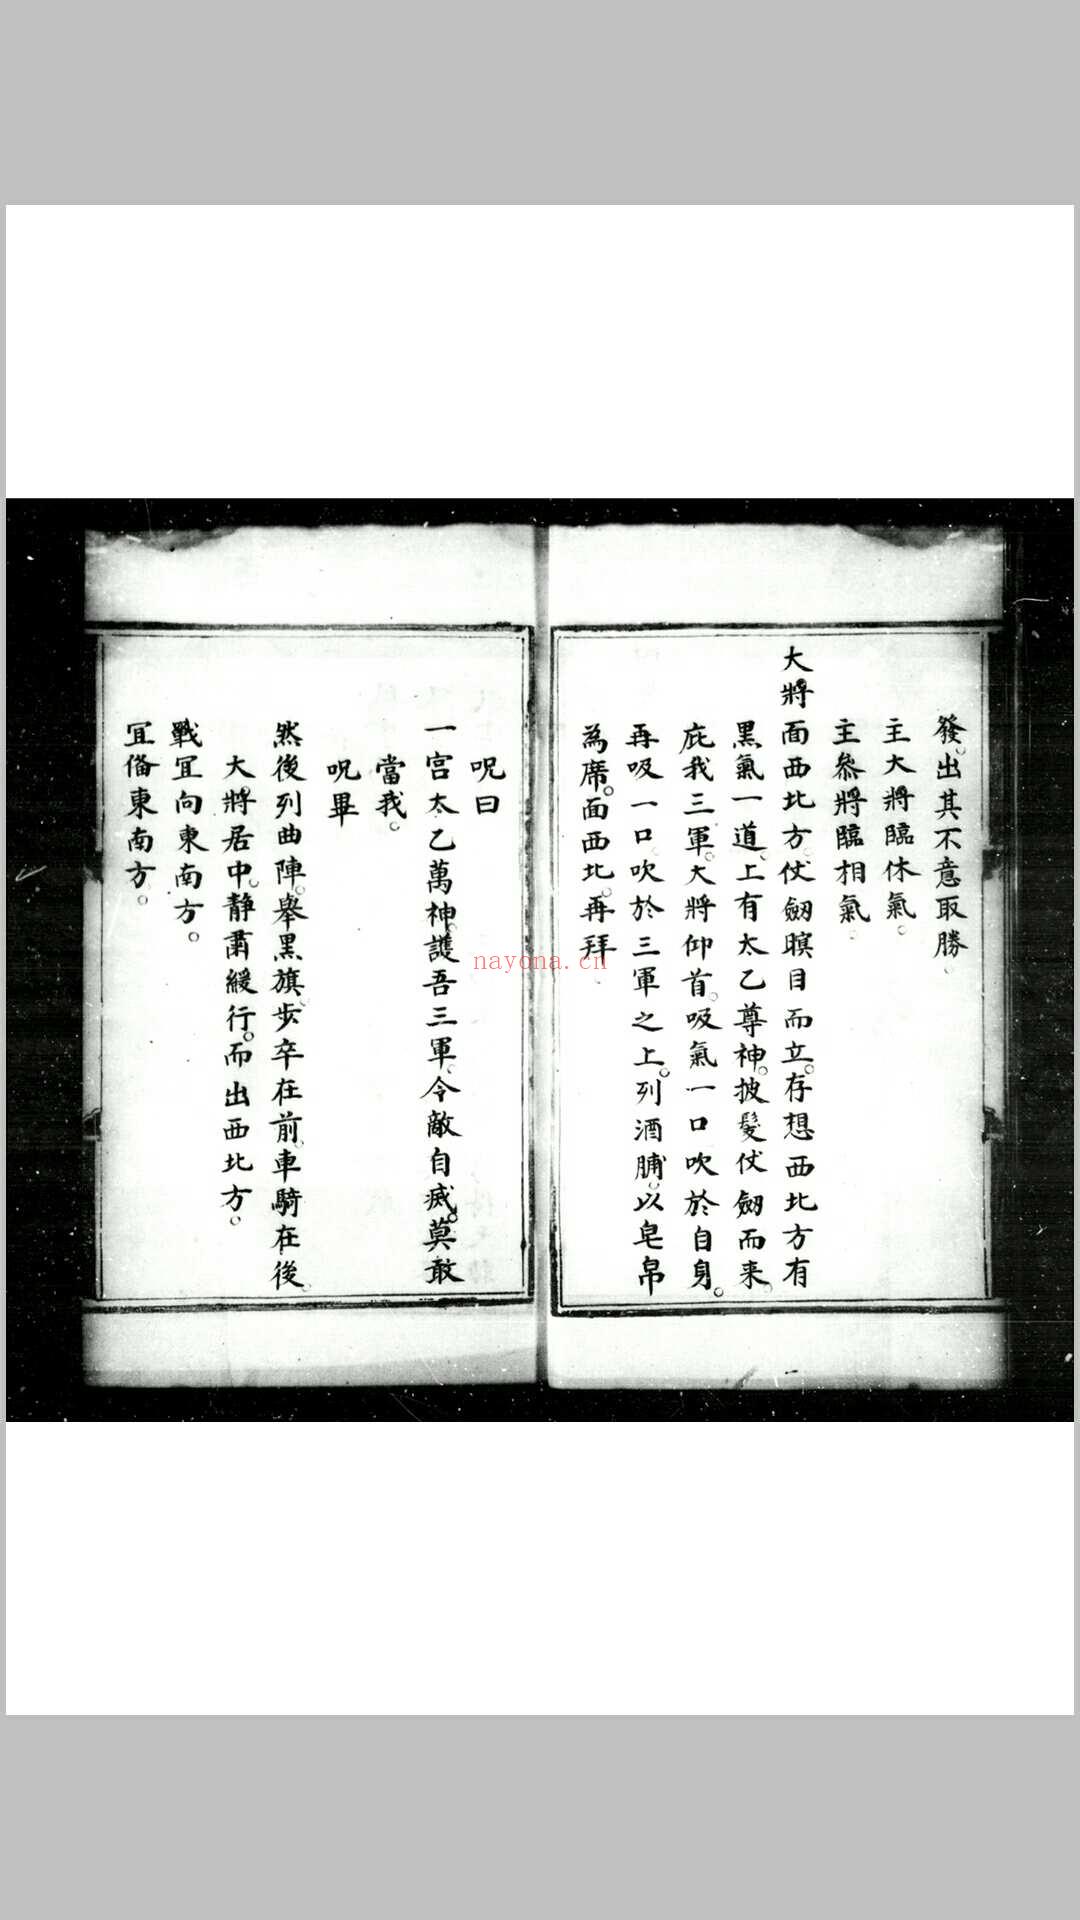 發。出其不意取勝。
主大將臨休氣。
主叅將臨相氣。
大將面西北方。仗劒瞑目而立。存想西北方有
黑氣一道。上有太乙尊神。披髮仗劒而来。
庇我三軍。大將仰首。吸氣一口吹於自身。
再吸一口。吹於三軍之上。列酒脯。以皂帛
為席。面西北。再拜。
呪曰
一宫太乙萬神。護吾三軍。令敵自㓕。莫敢
當我。
呪畢
然後列曲陣。舉黑旗。步卒在前。車騎在後。
大將居中。静肅緩行。而出西北方。
戰宜向東南方。
宜偹東南方。
nayona.cn